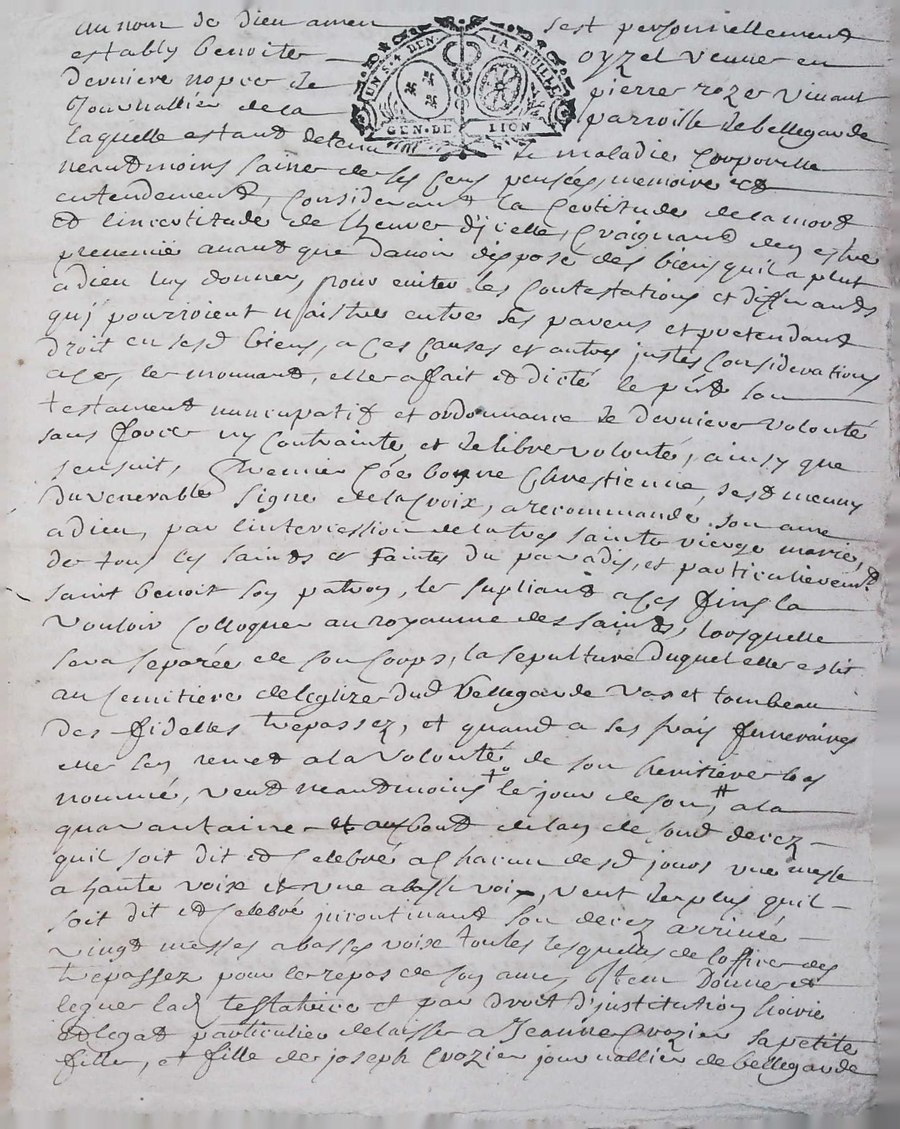 au nom de dieu amen sest personnellement
estably benoite oyzel veuve en
derniere nopce de pierre rozer vivant
Journallier de la parroisse de bellegarde
UN S. 4 DEN. LA FEUILLE
GEN. DE LION
laquelle estant detenue de maladie Corporelle
neautmoins saine de ses sens pensées, memoire et
entendement, Considerant la Certitude de la mort
et lincertitude de lheure d'jcelle, Craignant den estre
prevenüe avant que davoir disposé des biens quil a plut
a dieu luy donner, pour eviter les Contestations et differands
quj pourroient naistre entre ses parens et pretendant
droit en sesd biens, a ces causes et autres justes Considerations
elle a fait et dicté le pnt son
testament nuncupatif et ordonnance de derniere volonté
sans force ny Contrainte, et de libre volonté, ainsy que
sensuit, Premier Coe bonne Chrestienne, sest munny
du venerable signe de la Croix, a recommandé son ame
a dieu, par l'intercession de la tres sainte vierge marie, et
de tous les saints et saintes du paradis, et particulieremt
saint benoit son patron, les supliant a ces fins la
vouloir Colloquer au royaume des saints, lorsquelle
sera separée de son Corps, la sepulture duquel elle eslit
au Cemitiere de leglize dud bellegarde vas et tombeau
des fidelles trepassez, et quand a ses frais funeraires
elle sen remet a la volonté de son heritiere bas
nommée, veut neautmoins le jour de son, # a la
quarantaine et au bout de lan de sond decez
quil soit dit et celebré a Chacun desd jours une messe
a haute voix et une a basse voix, veut de plus quil
soit dit et Celebré incontinant son decez arrivé
vingt messes a basses voix toutes lesquelles de loffice des
trepassez pour le repos de son ame, Item Donne et
legue lad testatrice et par droit d'institution
et legat particulier delaisse a Jeanne Crozier sa petite
fille, et fille de joseph Crozier journallier de bellegarde